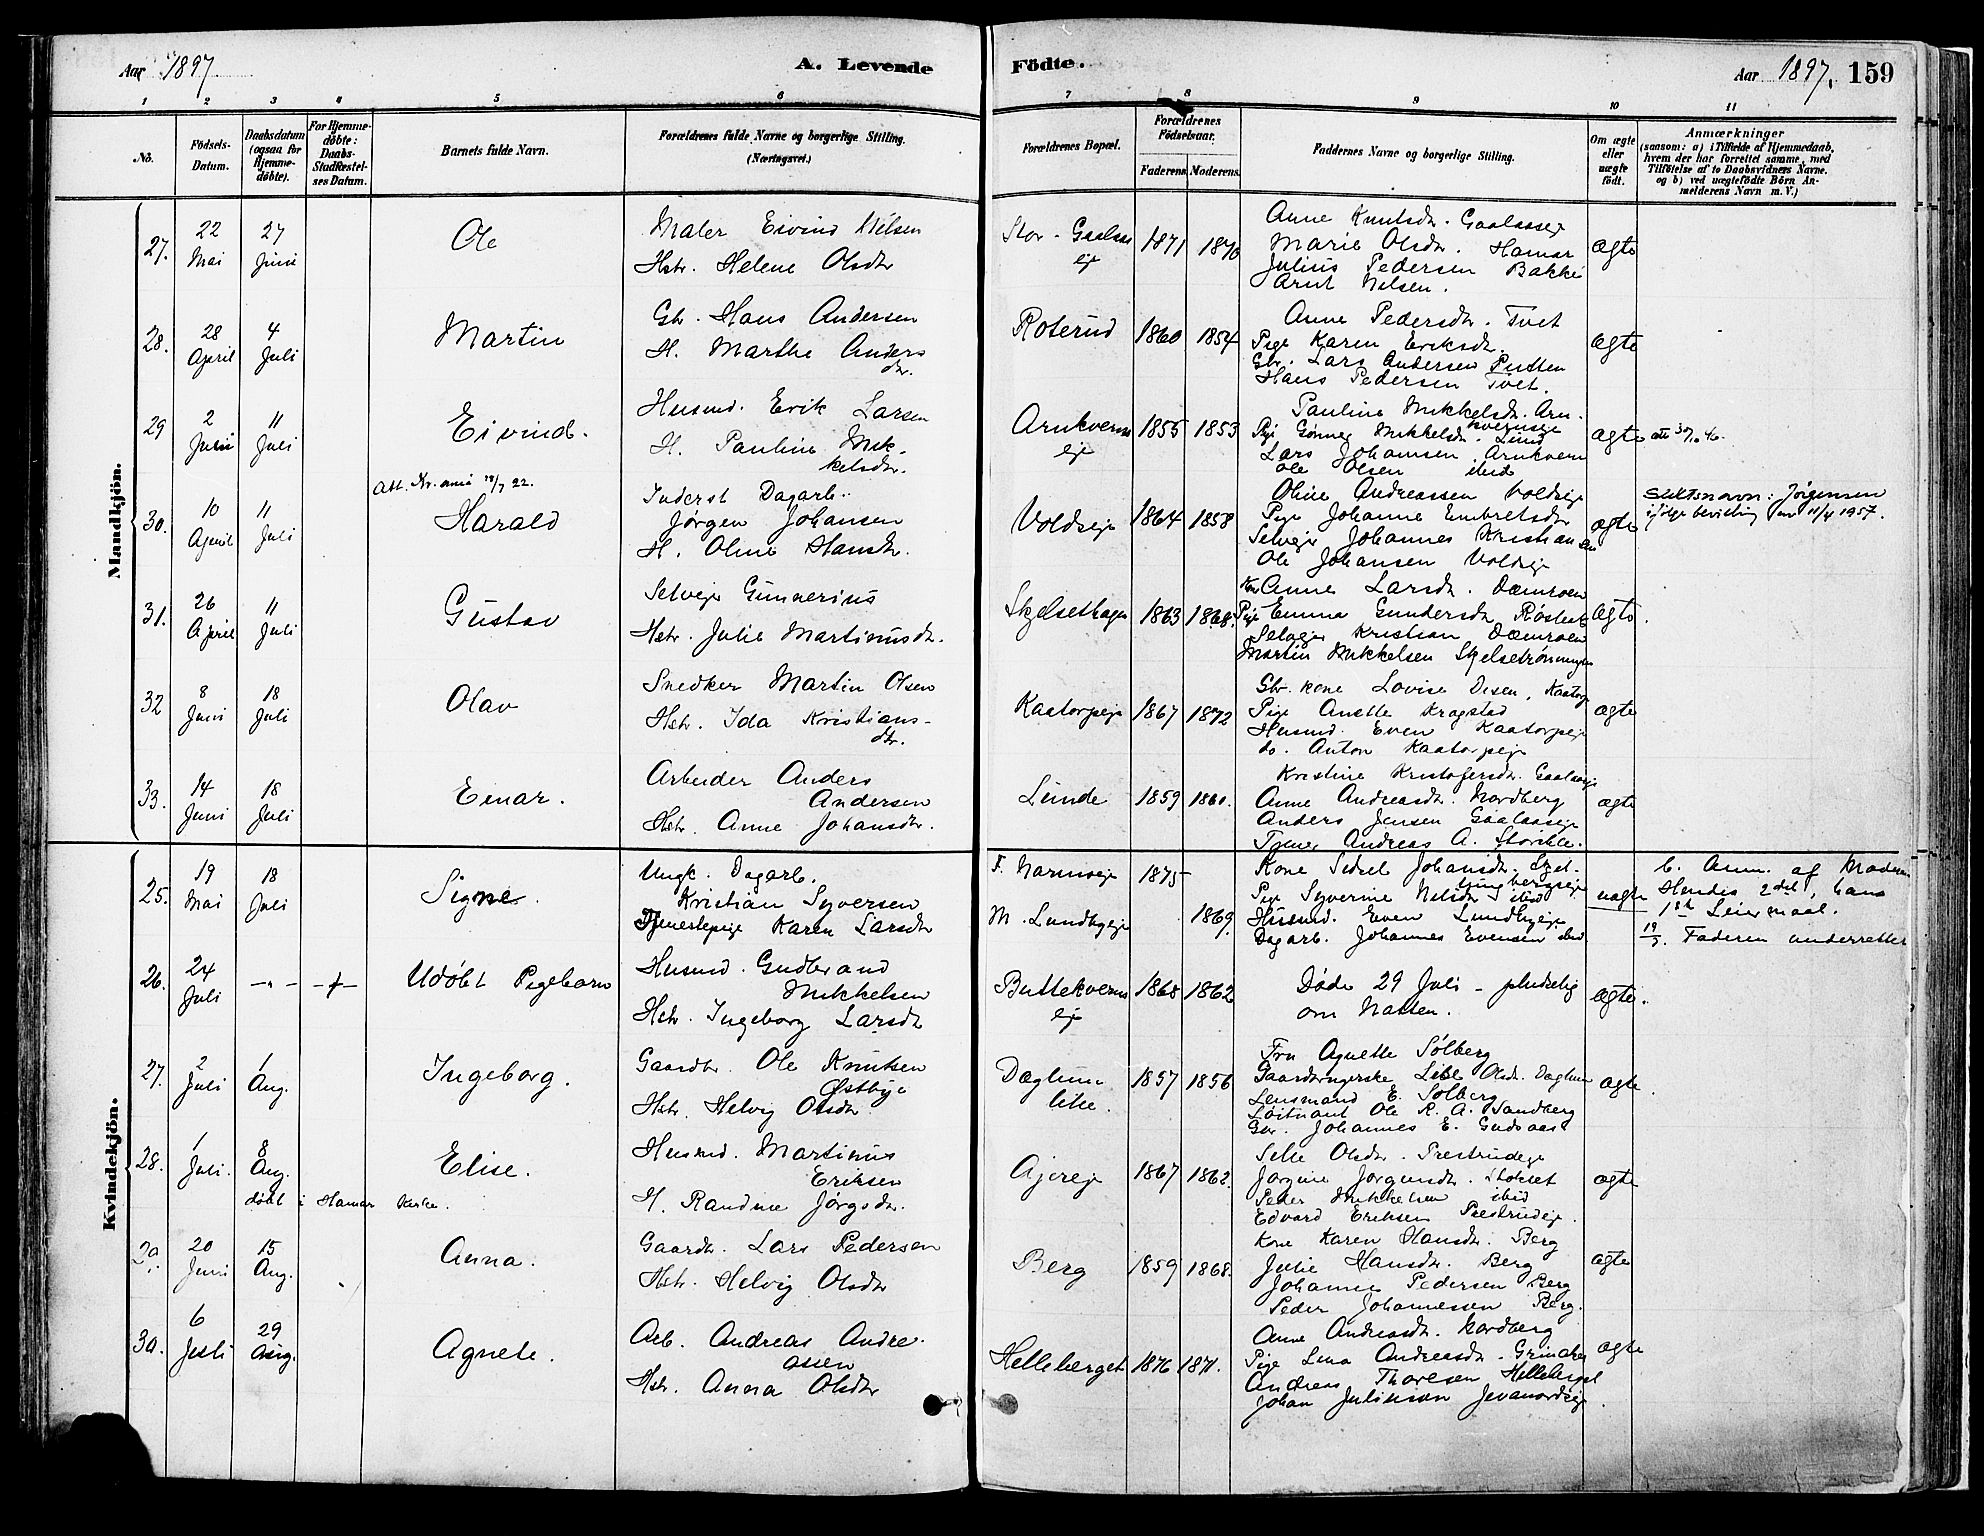 Aar 1897
A. Levende
Födte.
Aar 1897. 159
1 2 3 4 5 6 7 8 9 10 11
No.
Födsels-
Datum.
Daabsdatum
(ogsaa for
Hjemme-
døbte).
For Hjemme-
døbte:
Daabs-
Stadfæstel-
ses Datum.
Barnets fulde Navn.
Forældrenes fulde Navne og borgerlige Stilling.
(Næringsvei.)
Forældrenes Bopæl.
Forældrenes
Födselsaar.
Faderens Moderens
Faddernes Navne og borgerlige Stilling.
Om ægte
eller
uægte
født.
Anmærkninger
(saasom: a) i Tilfælde af Hjemmedaab,
hvem der har forrettet samme, med
Tilføielse af to Daabsvidners Navne.
og b) ved uægtefødte Börn An-
melderens Navn m. V.)
Mandkjön.
27.
22
Mai
27
Juni
Ole
Maler Eivind Nilsen
Hstr. Helene Olsdtr
Stor-Gaalaas
eje
1871 1870
Anne Knutsdtr. Gaalaaseje
Marie Olsdtr. Hamar
Julius Pedersen Bakke
Arnt Nilsen.
ægte
28.
28
April
4
Juli
Martin
Gbr. Hans Andersen
H. Marthe Anders
dtr.
Roterud
1860 1854
Anne Pedersdtr. Tvet
Pige Karen Eriksdtr.
Gbr. Lars Andersen Putten
Hans Pedersen Tvet.
ægte
29
2
Juni
11
Juli
Eivind.
Husmd. Erik Larsen
H. Pauline Mik-
kelsdtr.
Arnkverns
eje
1855 1853
Pauline Mikkelsdtr. Arn-
kvernseje
Pige Gunner Mikkelsdtr. Lund
Lars Johansen Arnkvern
Ole Olsen ibid
ægte
30.
10
April
11
Juli
Harald
Inderst Dagarb.
Jørgen Johansen
H. Oline Hansdtr.
Voldseje
1864 1858
Oline Andreassen Voldseje
Pige Johanne Embretsdtr
Selvejer Johannes Kristiansen
Ole Johansen Voldseje
ægte
Slektsnavn: Jørgensen
ifølge bevilling av 11/4 1957.
31.
26
April
11
Juli
Gustav
Selvejer Gunnerius
Hstr. Julie Martinusdtr.
Skjelsethagen
1863 1868.
Kone Anne Larsdtr. Dæmroen
Pige Emma Gundersdtr
Selvejer Kristian Dæmroen
Martin Mikkelsen
ægte
32
8
Juni
18
Juli
Olav
Snedker Martin Olsen
Hstr. Ida Kristians-
dtr.
Kaatorpeje
1867 1872
Gbr. kone Lovise Olsen, Kaatorp
Pige Anette Kragstad
Husmd. Even Kaatorpeje
do. Anton Kaatorpeje
ægte
33.
14
Juni
18
Juli
Einar.
Arbeider Anders
Andersen
Hstr. Anne Johansdtr.
Lunde
1859 1861.
Kristine Kristofersdtr. Gaalaaseje
Anne Andreasdtr. Nordberg
Anders Jensen Gaalaaseje
Tjener Andreas A.
ægte
Kvindekjön.
25.
19
Mai
18
Juli
Signe.
Ungk. Dagarb.
Kristian Syversen
Tjenestepige Karen Larsdtr
F.
M. Lundbyeje
1875
1869.
Kone Sidsel Johansdtr.
Pige Syverine Nilsdtr ibid
Husmd. Even Lundbyeje
Dagarb. Johannes Evensen ibid
uægte
b. Anm. af Moderen
Hendes 2det, hans
1ste Leiermaal.
19/5. Faderen underrettet
26.
24
Juli
Udøbt Pigebarn
Husmd. Gudbrand
Mikkelsen
Hstr. Ingeborg Larsdtr
Buttekverns
eje
1868 1862
Døde 29 Juli - pludselig
om Natten.
ægte.
27.
2
Juli
1
Aug.
Ingeborg.
Gaardbr. Ole Knutsen
Østbye
Hstr. Helvig Olsdtr
Daglun
lille.
1857 1856
Fru Agnette Sølberg
Gaardbrugerske Lise Olsdtr. Daglun
Lensmand E. Sølberg
Løitnant Ole K. A. Sandberg
Gbr. Johannes E. Gudsaas
ægte
28.
1
Juli.
8
Aug.
døbt i Hamar Kirke.
Elise.
Husmd. Martinus
Eriksen
H. Randine Jørgsdtr.
Ajereje
1867 1862.
Sille Olsdtr. Prestrudeje
Jørgine Jørgensdtr. Stokset
Peder Mikkelsen ibid
Edvard Eriksen Prestrudeje.
ægte
29.
20
Juni
15
Aug.
Anna.
Gaardbr. Lars Pedersen
Hstr. Helvig Olsdtr
Berg
1859 1868.
Kone Karen Hansdtr. Berg
Julie Hansdtr. Berg
Johannes Pedersen Berg
Peder Johannessen Berg.
ægte
30.
6
Juli
29
Aug.
Agnete.
Arb. Andreas Andre-
assen
Hstr. Anna Olsdtr
Helleberget
1876 1871.
Anne Andreasdtr. Nordberg
Pige Lina Andreasdtr.
Andreas Thoresen Helleberget
Johan Julinsson
ægte